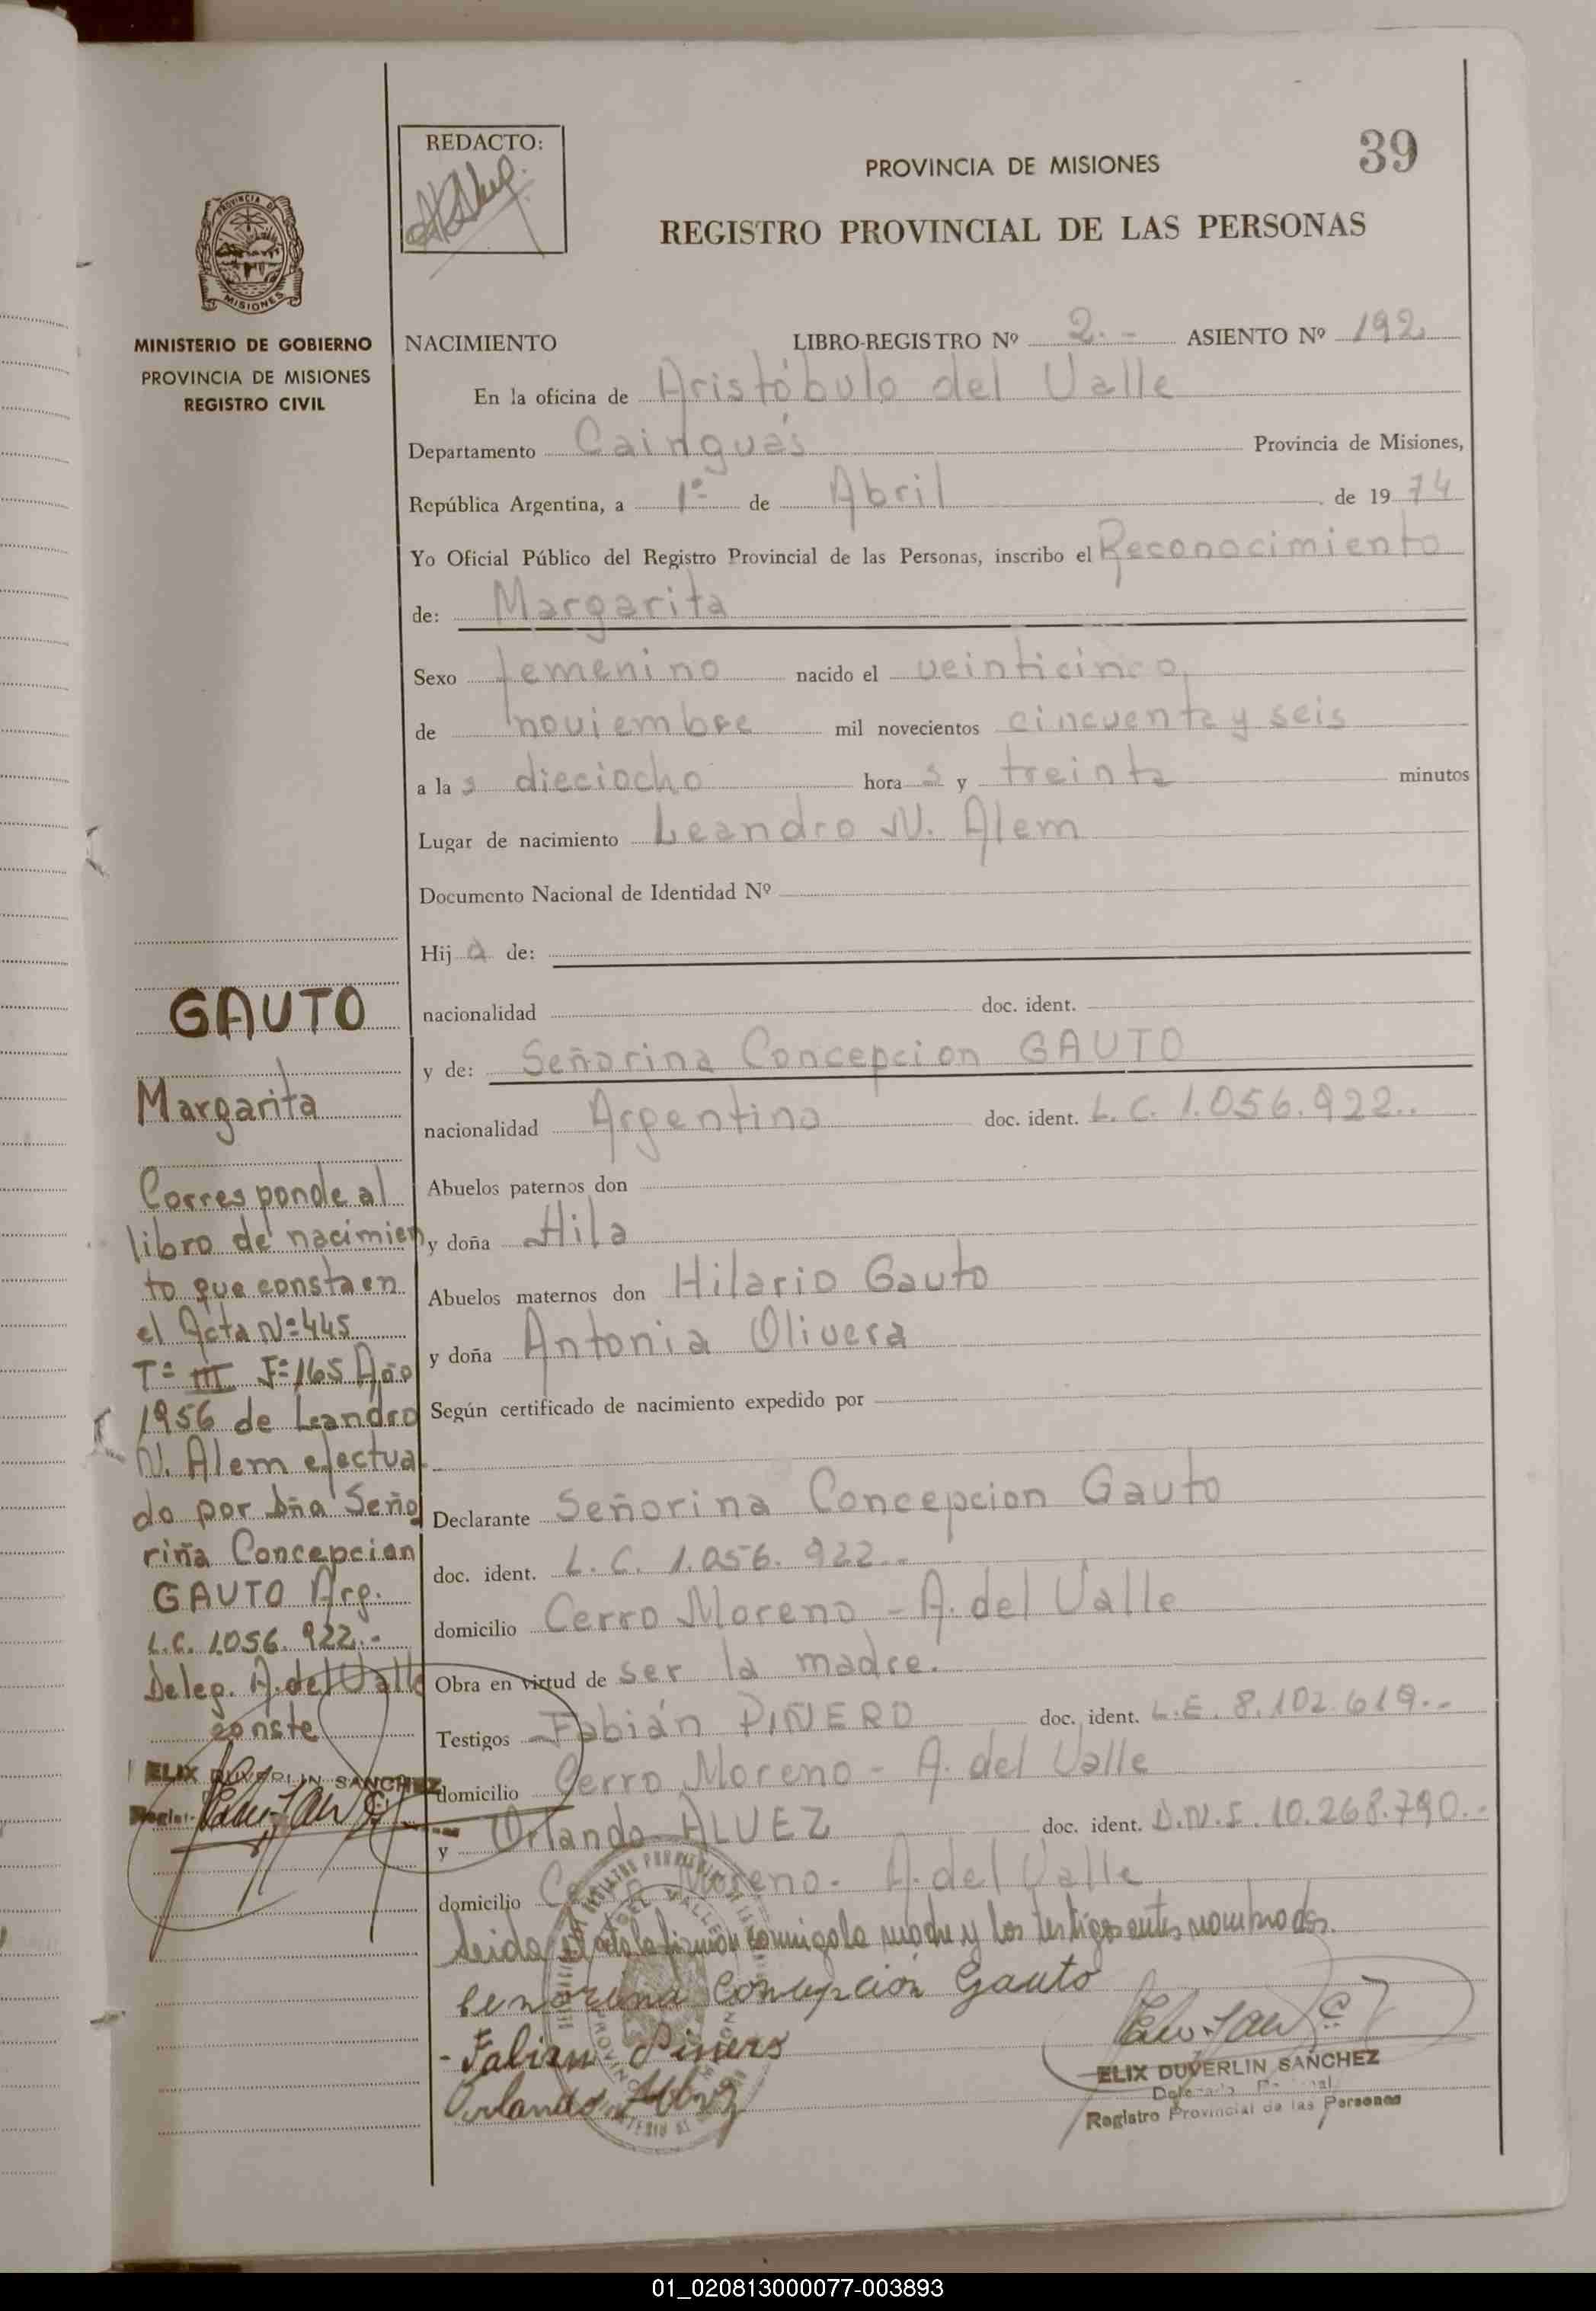 39
REDACTO:
PROVINCIA DE MISIONES
REGISTRO PROVINCIAL DE LAS PERSONAS
PROVINCIA DE
MISIONES
MINISTERIO DE GOBIERNO
PROVINCIA DE MISIONES
REGISTRO CIVIL
NACIMIENTO LIBRO-REGISTRO Nº 2.- ASIENTO Nº 192
En la oficina de Aristóbulo del Valle
Departamento Cainguás Provincia de Misiones,
República Argentina, a 1º de Abril de 1974
Yo Oficial Público del Registro Provincial de las Personas, inscribo el Reconocimiento
de: Margarita
Sexo femenino nacido el veinticinco
de noviembre mil novecientos cincuenta y seis
a las dieciocho horas y treinta minutos
Lugar de nacimiento Leandro N. Alem
Documento Nacional de Identidad Nº
Hija de:
nacionalidad doc. ident.
y de: Señorina Concepcion GAUTO
nacionalidad Argentina doc. ident. L.C. 1.056.922..
Abuelos paternos don
y doña Hila
Abuelos maternos don Hilario Gauto
y doña Antonia Olivera
Según certificado de nacimiento expedido por
Declarante Señorina Concepcion Gauto
doc. ident. L.C. 1.056.922..
domicilio Cerro Moreno - A. del Valle
Obra en virtud de ser la madre.
Testigos Fabián PIÑERO doc. ident. L.E. 8.102.619.-
domicilio Cerro Moreno - A. del Valle
y Orlando ALVEZ doc. ident. D.N.I. 10.268.790.-
domicilio Cerro Moreno - A. del Valle
Leida el acta la firman conmigo la madre y los testigos antes nombrados.
Senorina Concepción Gauto
- Fabian Piñero
Orlando Alvez
ELIX DUVERLIN SANCHEZ
Registro Provincial de las Personas
GAUTO
Margarita
Corresponde al
libro de nacimien
to que consta en
el Acta Nº 445
Tº III Fº 165 Año
1956 de Leandro
N. Alem efectua
do por Dña Seño
riña Concepcion
GAUTO Arg.
L.C. 1.056.922.-
Deleg. A. del Valle
conste
ELIX DUVERLIN SANCHEZ
01_020813000077-003893